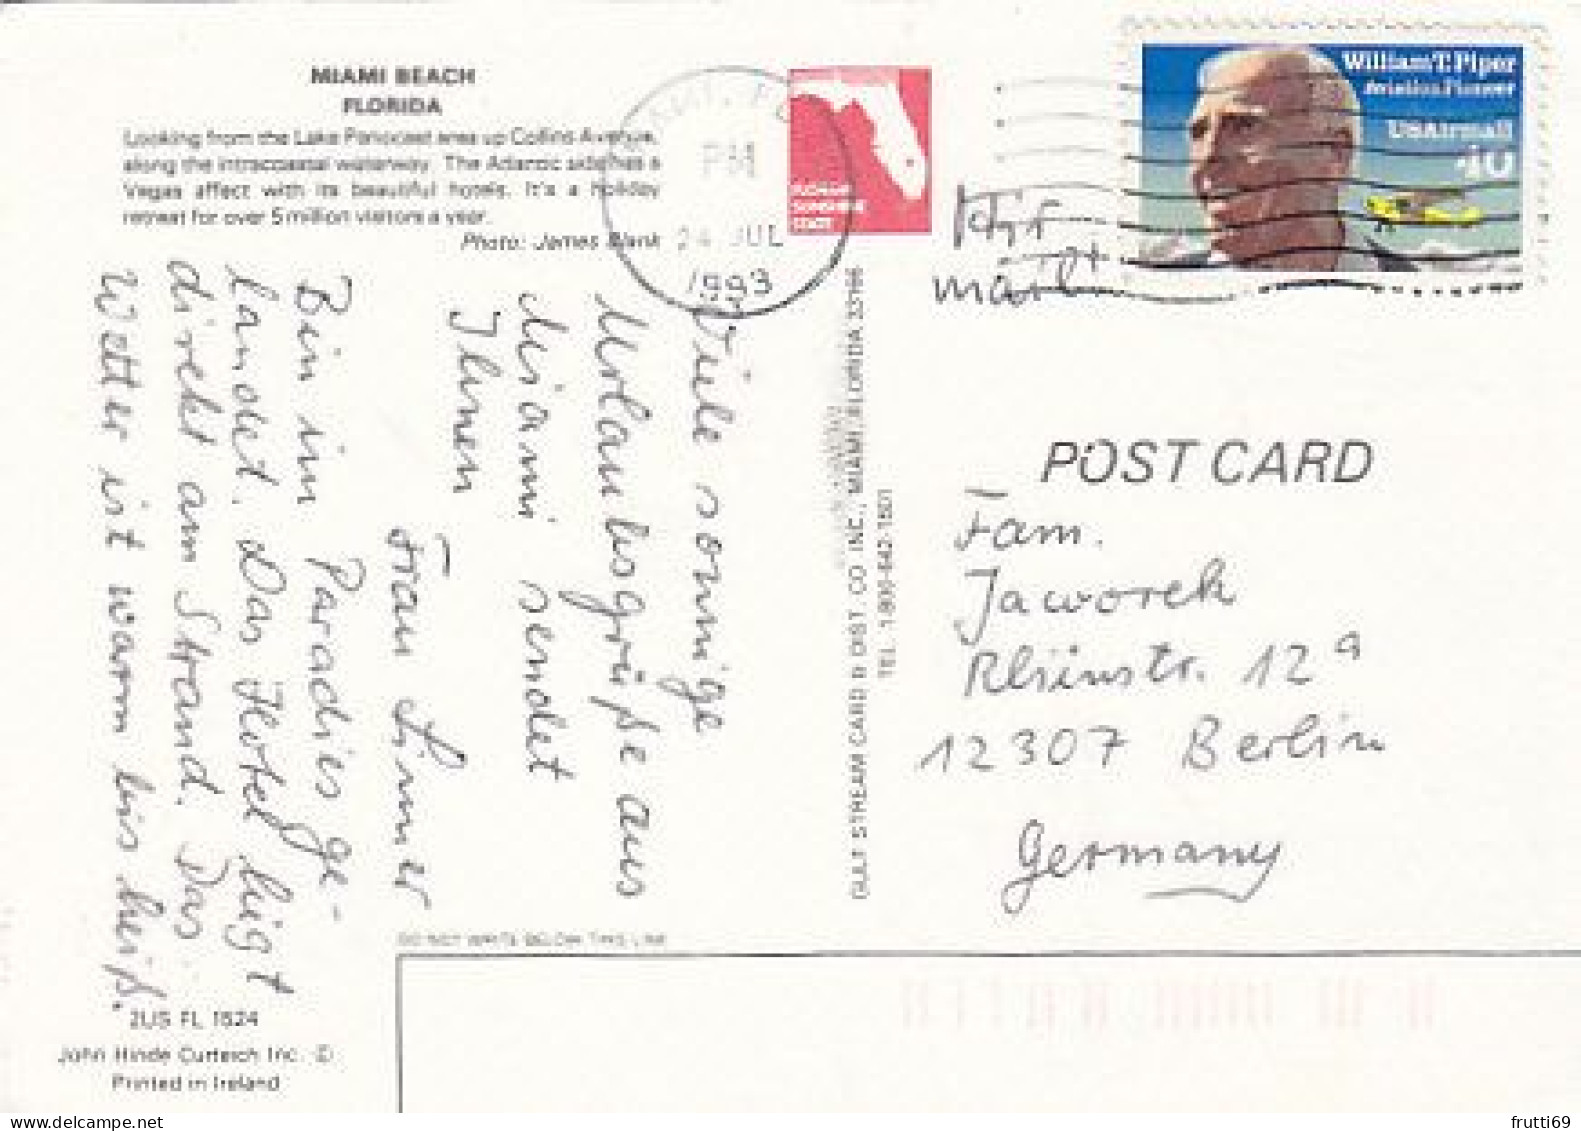 MIAMI BEACH
FLORIDA
Looking from the Lake Pancoast area up Collins Avenue,
along the intracoastal waterway. The Atlantic side has a
Vegas affect with its beautiful hotels. It's a holiday
retreat for over 5 million visitors a year.
Photo: James Blank
PM
24 JUL
1993
FLORIDA
SUNSHINE
STATE
William T. Piper
Aviation Pioneer
USAirmail
40
Air
mail
Viele sonnige
Urlaubsgrüße aus
Miami sendet
Ihnen
Frau
Bin im Paradis ge-
landet. Das Hotel liegt
direkt am Strand. Das
Wetter ist warm bis heiß.
GULF STREAM CARD & DIST. CO. INC., MIAMI, FLORIDA 33166
TEL. 1-800-642-1501
POST CARD
Fam.
Jaworek
12a
12307 Berlin
Germany
DO NOT WRITE BELOW THIS LINE
2US FL 1524
John Hinde Curteich Inc. ©
Printed in Ireland
frutti69